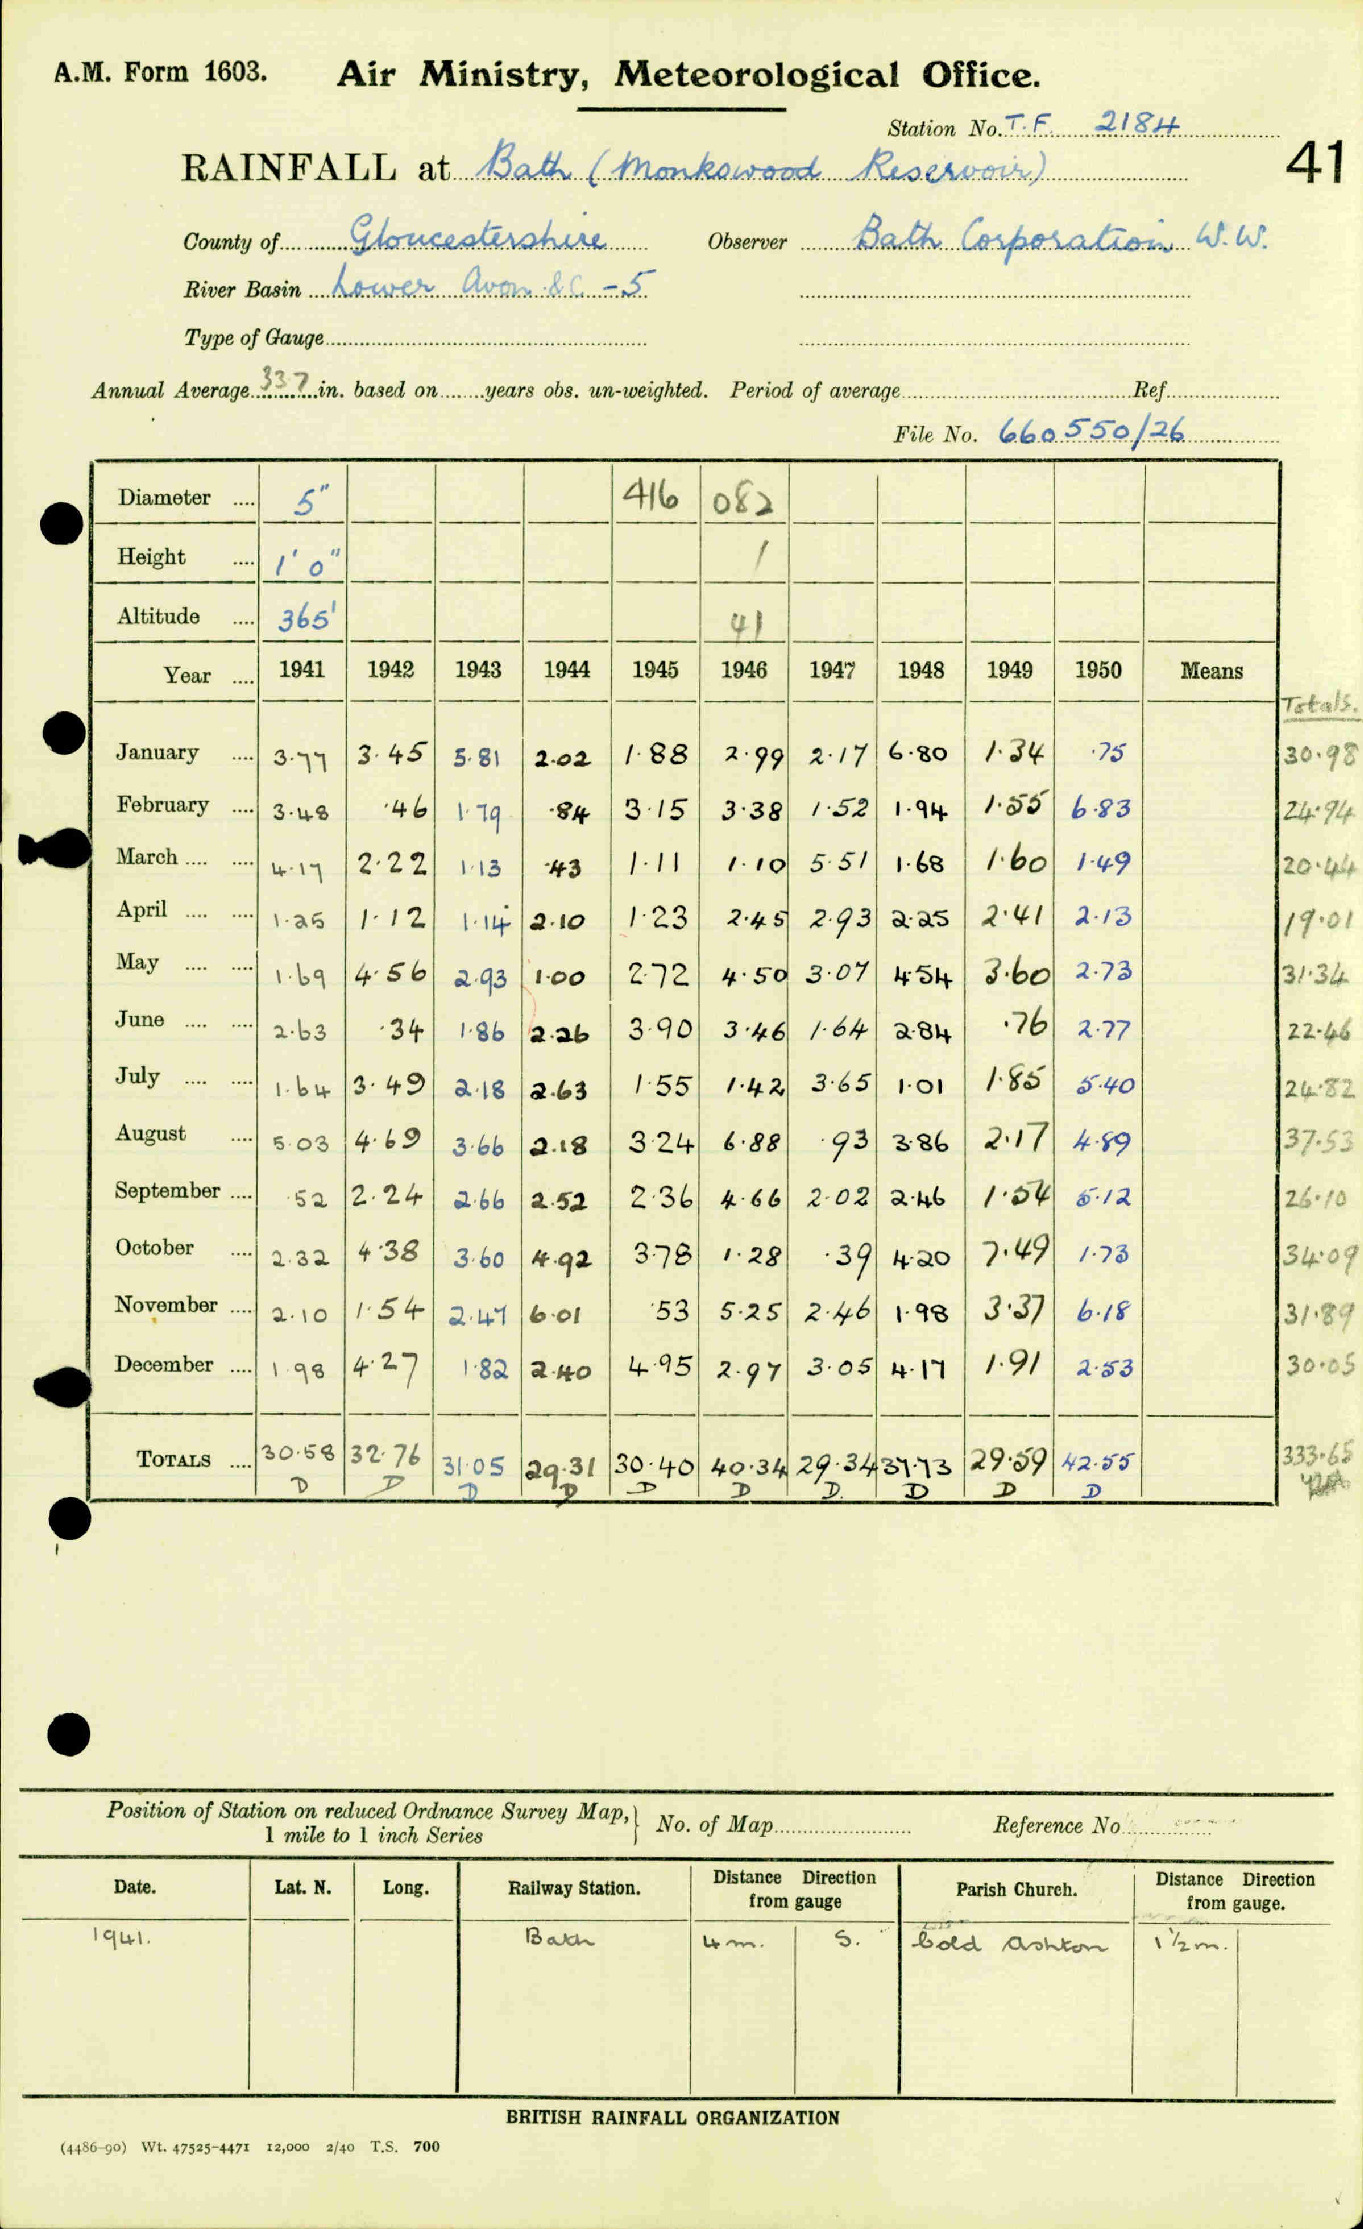 A.M. Form 1603. Air Ministry, Meteorological Office.
Station No. T.F. 2184
41
RAINFALL at Bath (Monkswood Reservoir)
County of Gloucestershire Observer Bath Corporation W.W.
River Basin Lower Avon &c -5
Type of Gauge
Annual Average 33.7 in. based on years obs. un-weighted. Period of average Ref.
File No. 660550/26
Diameter .... 5" 416 082
Height .... 1' 0" 1
Altitude .... 365' 41
Year .... 1941 1942 1943 1944 1945 1946 1947 1948 1949 1950 Means
Totals.
January .... 3.77 3.45 5.81 2.02 1.88 2.99 2.17 6.80 1.34 .75 30.98
February .... 3.48 .46 1.79 .84 3.15 3.38 1.52 1.94 1.55 6.83 24.94
March .... .... 4.17 2.22 1.13 .43 1.11 1.10 5.51 1.68 1.60 1.49 20.44
April .... .... 1.25 1.12 1.14 2.10 1.23 2.45 2.93 2.25 2.41 2.13 19.01
May .... .... 1.69 4.56 2.93 1.00 2.72 4.50 3.07 4.54 3.60 2.73 31.34
June .... .... 2.63 .34 1.86 2.26 3.90 3.46 1.64 2.84 .76 2.77 22.46
July .... .... 1.64 3.49 2.18 2.63 1.55 1.42 3.65 1.01 1.85 5.40 24.82
August .... 5.03 4.69 3.66 2.18 3.24 6.88 .93 3.86 2.17 4.89 37.53
September .... .52 2.24 2.66 2.52 2.36 4.66 2.02 2.46 1.54 5.12 26.10
October .... 2.32 4.38 3.60 4.92 3.78 1.28 .39 4.20 7.49 1.73 34.09
November .... 2.10 1.54 2.47 6.01 .53 5.25 2.46 1.98 3.37 6.18 31.89
December .... 1.98 4.27 1.82 2.40 4.95 2.97 3.05 4.17 1.91 2.53 30.05
TOTALS .... 30.58 32.76 31.05 29.31 30.40 40.34 29.34 37.73 29.59 42.55 333.65
D D D D D D D. D D D
Position of Station on reduced Ordnance Survey Map, } No. of Map Reference No.
1 mile to 1 inch Series
Date. Lat. N. Long. Railway Station. Distance Direction from gauge Parish Church. Distance Direction from gauge.
1941. Bath 4 m. S. Cold Ashton 1 ½ m.
BRITISH RAINFALL ORGANIZATION
(4486-90) Wt. 47525-4471 12,000 2/40 T.S. 700